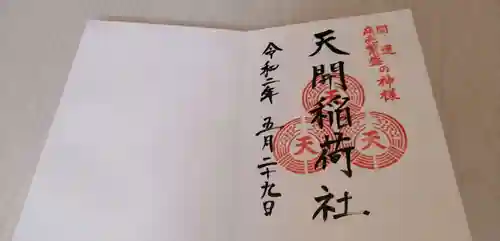 開運
商売繁盛の神様
天開稲荷社
天
天
天
令和二年 五月二十九日